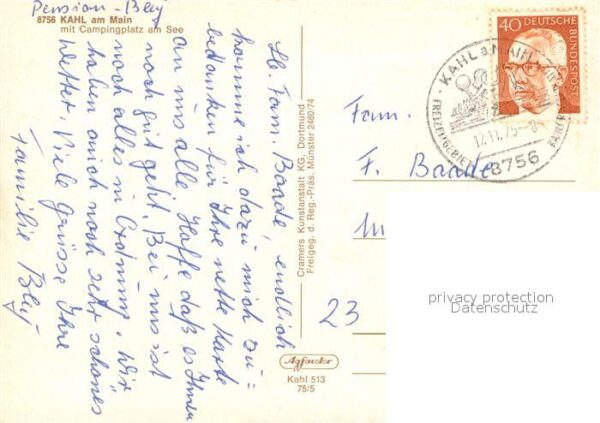 Pension - Bley
8756 KAHL am Main
mit Campingplatz am See
Lb. Fam. Baade, endlich
komme ich dazu mich zu =
bedanken für Ihre nette Karte
an uns alle. Hoffe daß es Ihnen
noch gut geht. Bei uns ist
noch alles in Ordnung. Wir
haben auch noch sehr schönes
Wetter. Viele Grüsse Ihre
Familie Bley
Cramers Kunstanstalt KG, Dortmund
Freigeg. d. Reg.-Präs. Münster 2480/74
Agfacolor
Kahl 513
75/5
40 DEUTSCHE
BUNDESPOST
KAHL a. MAIN
17.11.75-8
8756
Fam.
F. Baade
23
privacy protection
Datenschutz